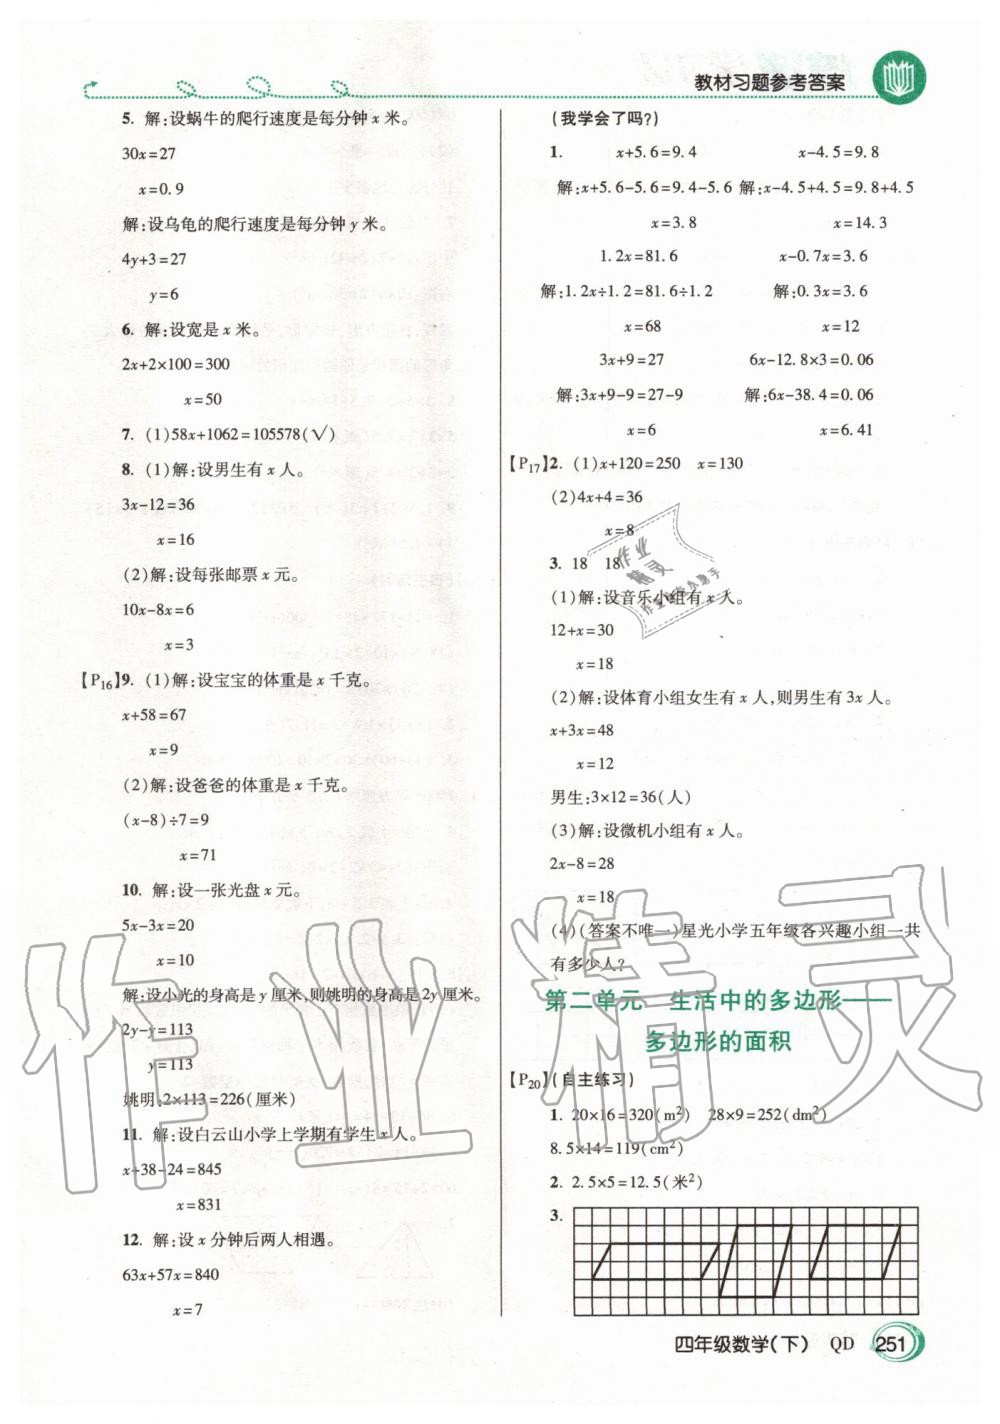 教材习题参考答案
5. 解:设蜗牛的爬行速度是每分钟x米。
30x=27
x=0.9
解:设乌龟的爬行速度是每分钟y米。
4y+3=27
y=6
6. 解:设宽是x米。
2x+2×100=300
x=50
7. (1)58x+1062=105578(√)
8. (1)解:设男生有x人。
3x-12=36
x=16
(2)解:设每张邮票x元。
10x-8x=6
x=3
【P16】9. (1)解:设宝宝的体重是x千克。
x+58=67
x=9
(2)解:设爸爸的体重是x千克。
(x-8)÷7=9
x=71
10. 解:设一张光盘x元。
5x-3x=20
x=10
解:设小光的身高是y厘米,则姚明的身高是2y厘米。
2y-y=113
y=113
姚明:2×113=226(厘米)
11. 解:设白云山小学上学期有学生x人。
x+38-24=845
x=831
12. 解:设x分钟后两人相遇。
63x+57x=840
x=7
(我学会了吗?)
1. x+5.6=9.4 x-4.5=9.8
解:x+5.6-5.6=9.4-5.6 解:x-4.5+4.5=9.8+4.5
x=3.8 x=14.3
1.2x=81.6 x-0.7x=3.6
解:1.2x÷1.2=81.6÷1.2 解:0.3x=3.6
x=68 x=12
3x+9=27 6x-12.8×3=0.06
解:3x+9-9=27-9 解:6x-38.4=0.06
x=6 x=6.41
【P17】2. (1)x+120=250 x=130
(2)4x+4=36
x=8
3. 18 18
(1)解:设音乐小组有x人。
12+x=30
x=18
(2)解:设体育小组女生有x人,则男生有3x人。
x+3x=48
x=12
男生:3×12=36(人)
(3)解:设微机小组有x人。
2x-8=28
x=18
(4)(答案不唯一)星光小学五年级各兴趣小组一共
有多少人?
第二单元 生活中的多边形——
多边形的面积
【P20】(自主练习)
1. 20×16=320(m²) 28×9=252(dm²)
8.5×14=119(cm²)
2. 2.5×5=12.5(米²)
3.
四年级数学(下) QD 251
作业精灵
作业
精灵